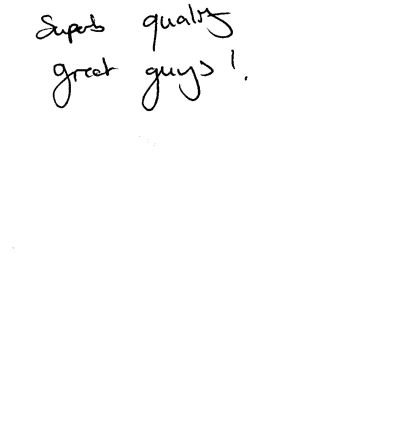 Superb quality
great guys!